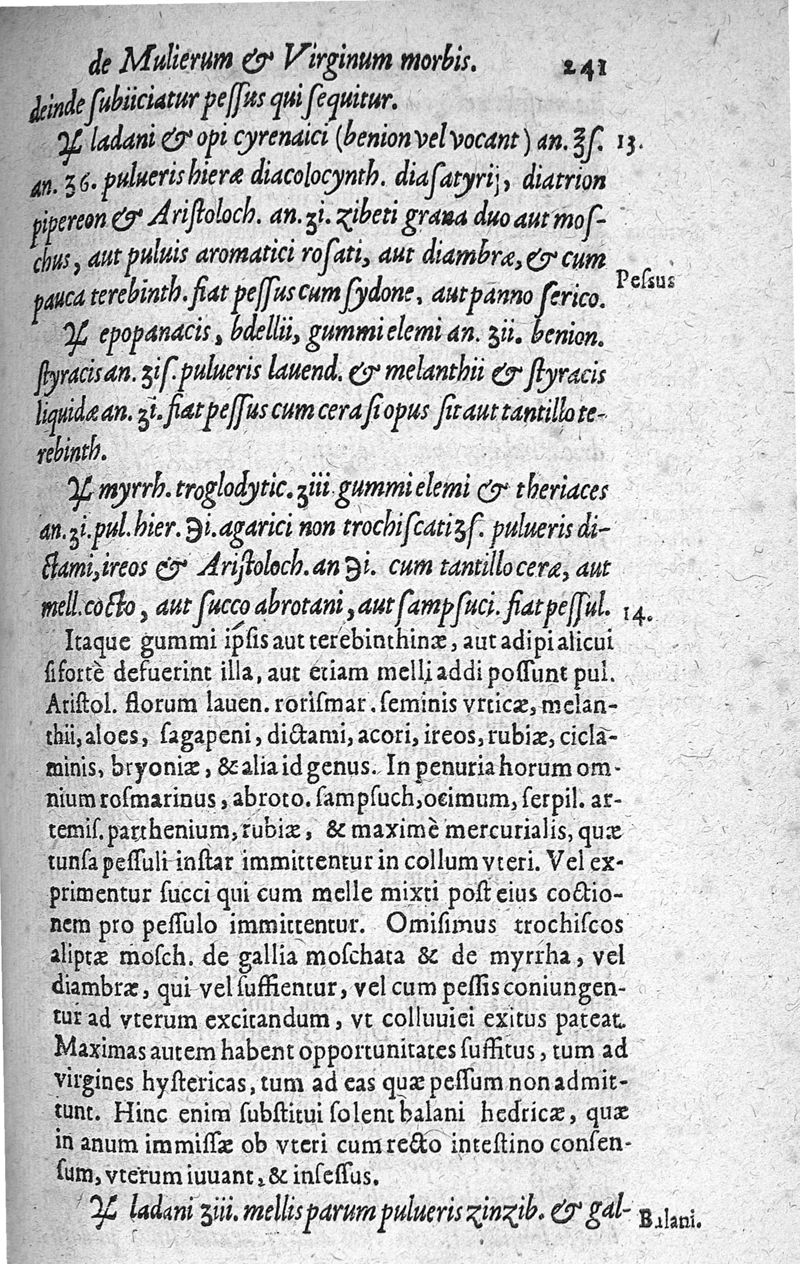 de Mulierum & Virginum morbis. 241
deinde ſubiiciatur peſſus qui ſequitur.
℞ ladani & opi cyrenaici (benion vel vocant) an. ʒſ. 13.
an. ʒ6. pulueris hieræ diacolocynth. diaſatyrij, diatrion
pipereon & Ariſtoloch. an. ʒi. zibeti grana duo aut moſ-
chus, aut puluis aromatici roſati, aut diambræ, & cum
Peſsus
pauca terebinth. fiat peſſus cum ſydone, aut panno ſerico.
℞ epopanacis, bdellii, gummi elemi an. ʒii. benion.
ſtyracis an. ʒiſ. pulueris lauend. & melanthii & ſtyracis
liquidæ an. ʒi. fiat peſſus cum cera ſi opus ſit aut tantillo te-
rebinth.
℞ myrrh. troglodytic. ʒiii gummi elemi & theriaces
an. ʒi. pul. hier. ℈i. agarici non trochiſcati ʒſ. pulueris di-
ctami, ireos & Ariſtoloch. an ℈i. cum tantillo ceræ, aut
mell. cocto, aut ſucco abrotani, aut ſampſuci. fiat peſſul. 14.
Itaque gummi ipſis aut terebinthinæ, aut adipi alicui
ſi fortè defuerint illa, aut etiam melli addi poſſunt pul.
Ariſtol. florum lauen. roriſmar. ſeminis vrticæ, melan-
thii, aloes, ſagapeni, dictami, acori, ireos, rubiæ, cicla-
minis, bryoniæ, & alia id genus. In penuria horum om-
nium roſmarinus, abroto. ſampſuch, ocimum, ſerpil. ar-
temiſ. parthenium, rubiæ, & maximè mercurialis, quæ
tunſa peſſuli inſtar immittentur in collum vteri. Vel ex-
primentur ſucci qui cum melle mixti poſt eius coctio-
nem pro peſſulo immittentur. Omiſimus trochiſcos
aliptæ moſch. de gallia moſchata & de myrrha, vel
diambræ, qui vel ſuffientur, vel cum peſſis coniungen-
tur ad vterum excitandum, vt colluuiei exitus pateat.
Maximas autem habent opportunitates ſuffitus, tum ad
virgines hyſtericas, tum ad eas quæ peſſum non admit-
tunt. Hinc enim ſubſtitui ſolent balani hedricæ, quæ
in anum immiſſæ ob vteri cum recto inteſtino conſen-
ſum, vterum iuuant, & inſeſſus.
℞ ladani ʒiii. mellis parum pulueris zinzib. & gal-
Balani.